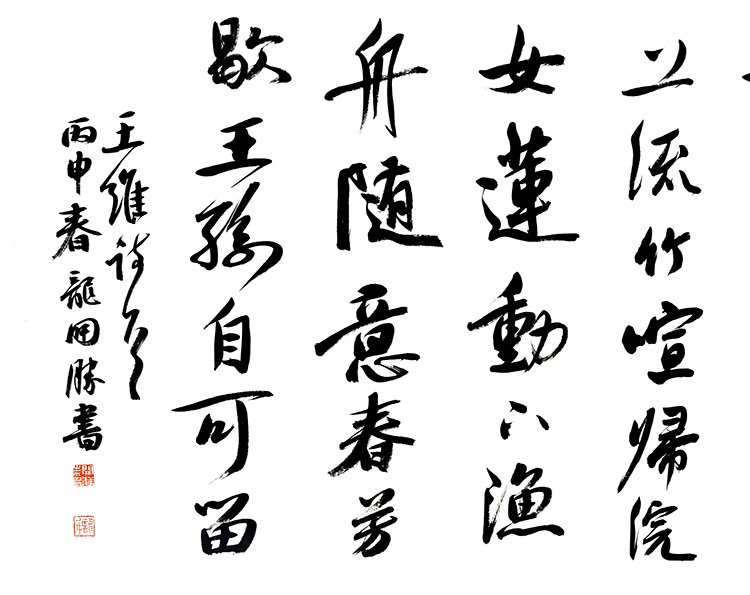 上流竹喧歸浣
女蓮動下漁
舟随意春芳
歇王孫自可留
王維詩
丙申春龍開勝書